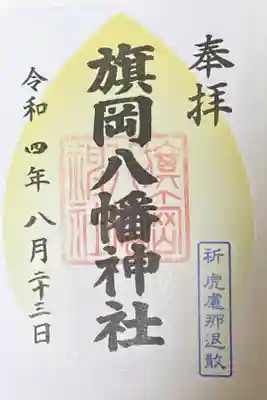 奉拝
祈 虎慮那退散
旗岡八幡神社
令和四年八月二十三日